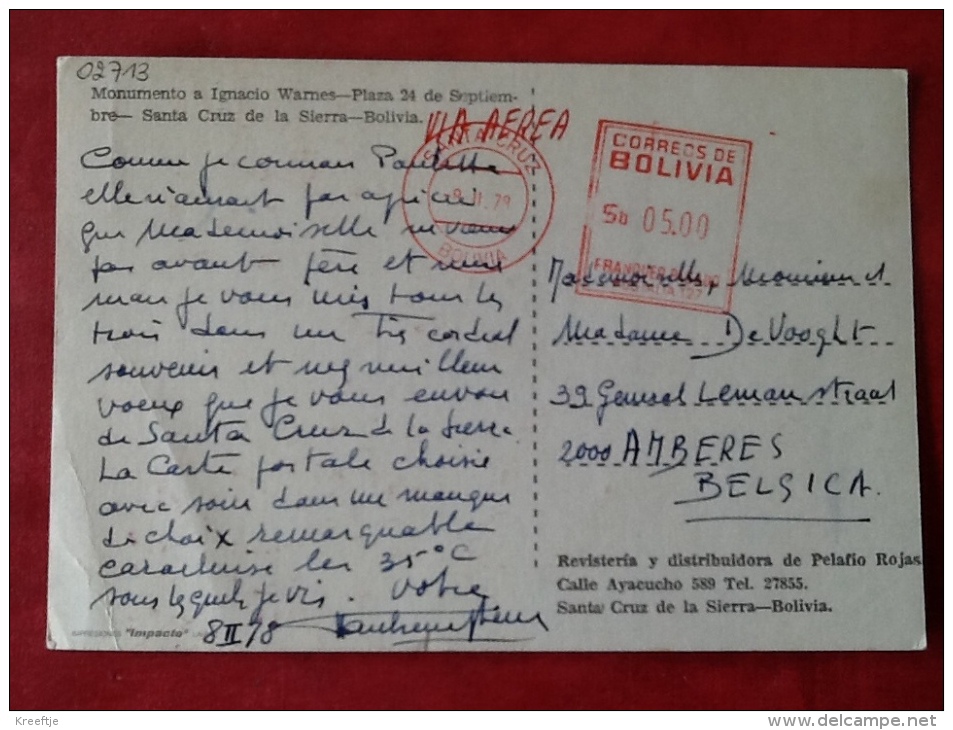 02713
Monumento a Ignacio Warnes—Plaza 24 de Septiem-
bre— Santa Cruz de la Sierra—Bolivia.
VIA AEREA
SANTA CRUZ
BOLIVIA
CORREOS DE
BOLIVIA
05.00
Comme je connais Paulette
elle n'aimait pas
que Mademoiselle ne
pas avant père et
je vous mis tous les
trois dans un très cordial
souvenir et mes meilleurs
voeux que je vous envoie
de Santa Cruz de la Sierra
La Carte postale choisie
avec soin dans un manque
de choix remarquable
caractérise les 35°C
sous lesquels je vis. Votre
8 II 78
Mademoiselle, Monsieur et
Madame De Vooght
39 General Leman straat
2000 AMBERES
BELGICA.
Revistería y distribuidora de Pelafio Rojas
Calle Ayacucho 589 Tel. 27855.
Santa Cruz de la Sierra—Bolivia.
"Impacto"
Kreeftje
www.delcampe.net